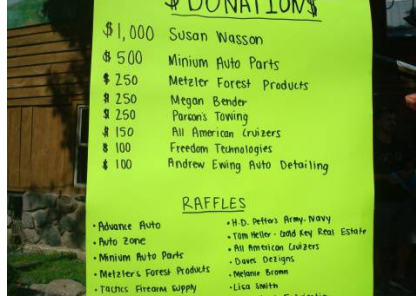 $ DONATION$
$1,000 Susan Wasson
$500 Minium Auto Parts
$250 Metzler Forest Products
$250 Megan Bender
$250 Parson's Towing
$150 All American Cruizers
$100 Freedom Technologies
$100 Andrew Ewing Auto Detailing
RAFFLES
• Advance Auto
• Auto Zone
• Minium Auto Parts
• Metzler's Forest Products
• Tactics Firearm Supply
• H.D. Peffers Army-Navy
• Tom Heller - Gold Key Real Estate
• All American Cruizers
• Daves Dezigns
• Melanie Bromm
• Lisa Smith